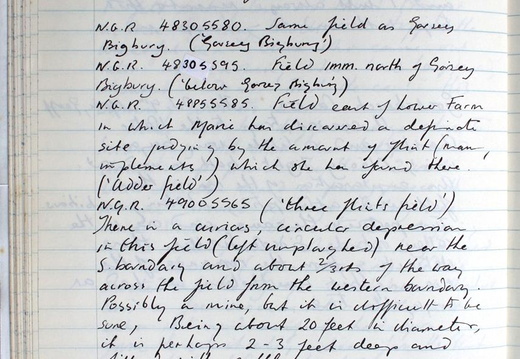 N.G.R 48305580. Same field as Gorsey
Bigbury. ('Gorsey Bigbury')
N.G.R. 48305595. Field imm. north of Gorsey
Bigbury. ('below Gorsey Bigbury')
N.G.R. 48955585. Field east of Lower Farm
in which Marie has discovered a definite
site judging by the amount of flint (many
implements) which she has found there.
('Adder field')
N.G.R. 49005565 ('three flints field')
There is a curious, circular depression
in this field (left unploughed) near the
S. boundary and about 2/3rds of the way
across the field from the western boundary.
Possibly a mine, but it is difficult to be
sure, Being about 20 feet in diameter,
it is perhaps 2-3 feet deep and